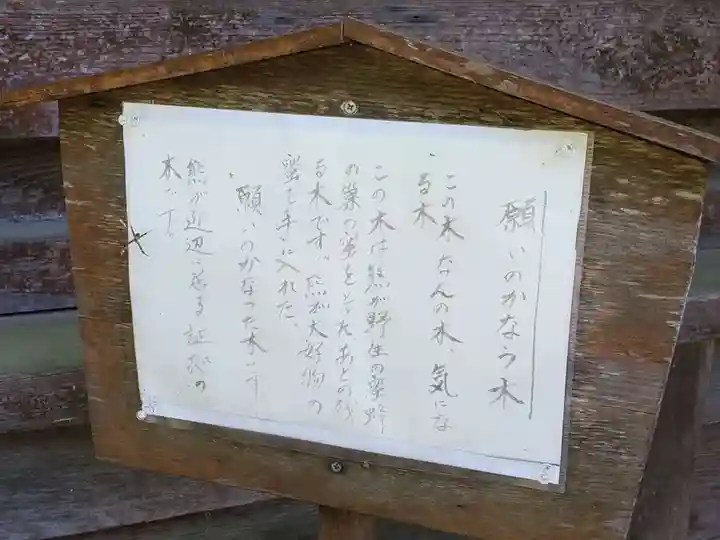 願いのかなう木
この木なんの木、気にな
る木
この木は熊が野生の
の巣の蜜をとったあとの残
る木です。熊が大好物の
蜜を手に入れた。
願いのかなった木です
熊が近辺に居る証拠の
木です。